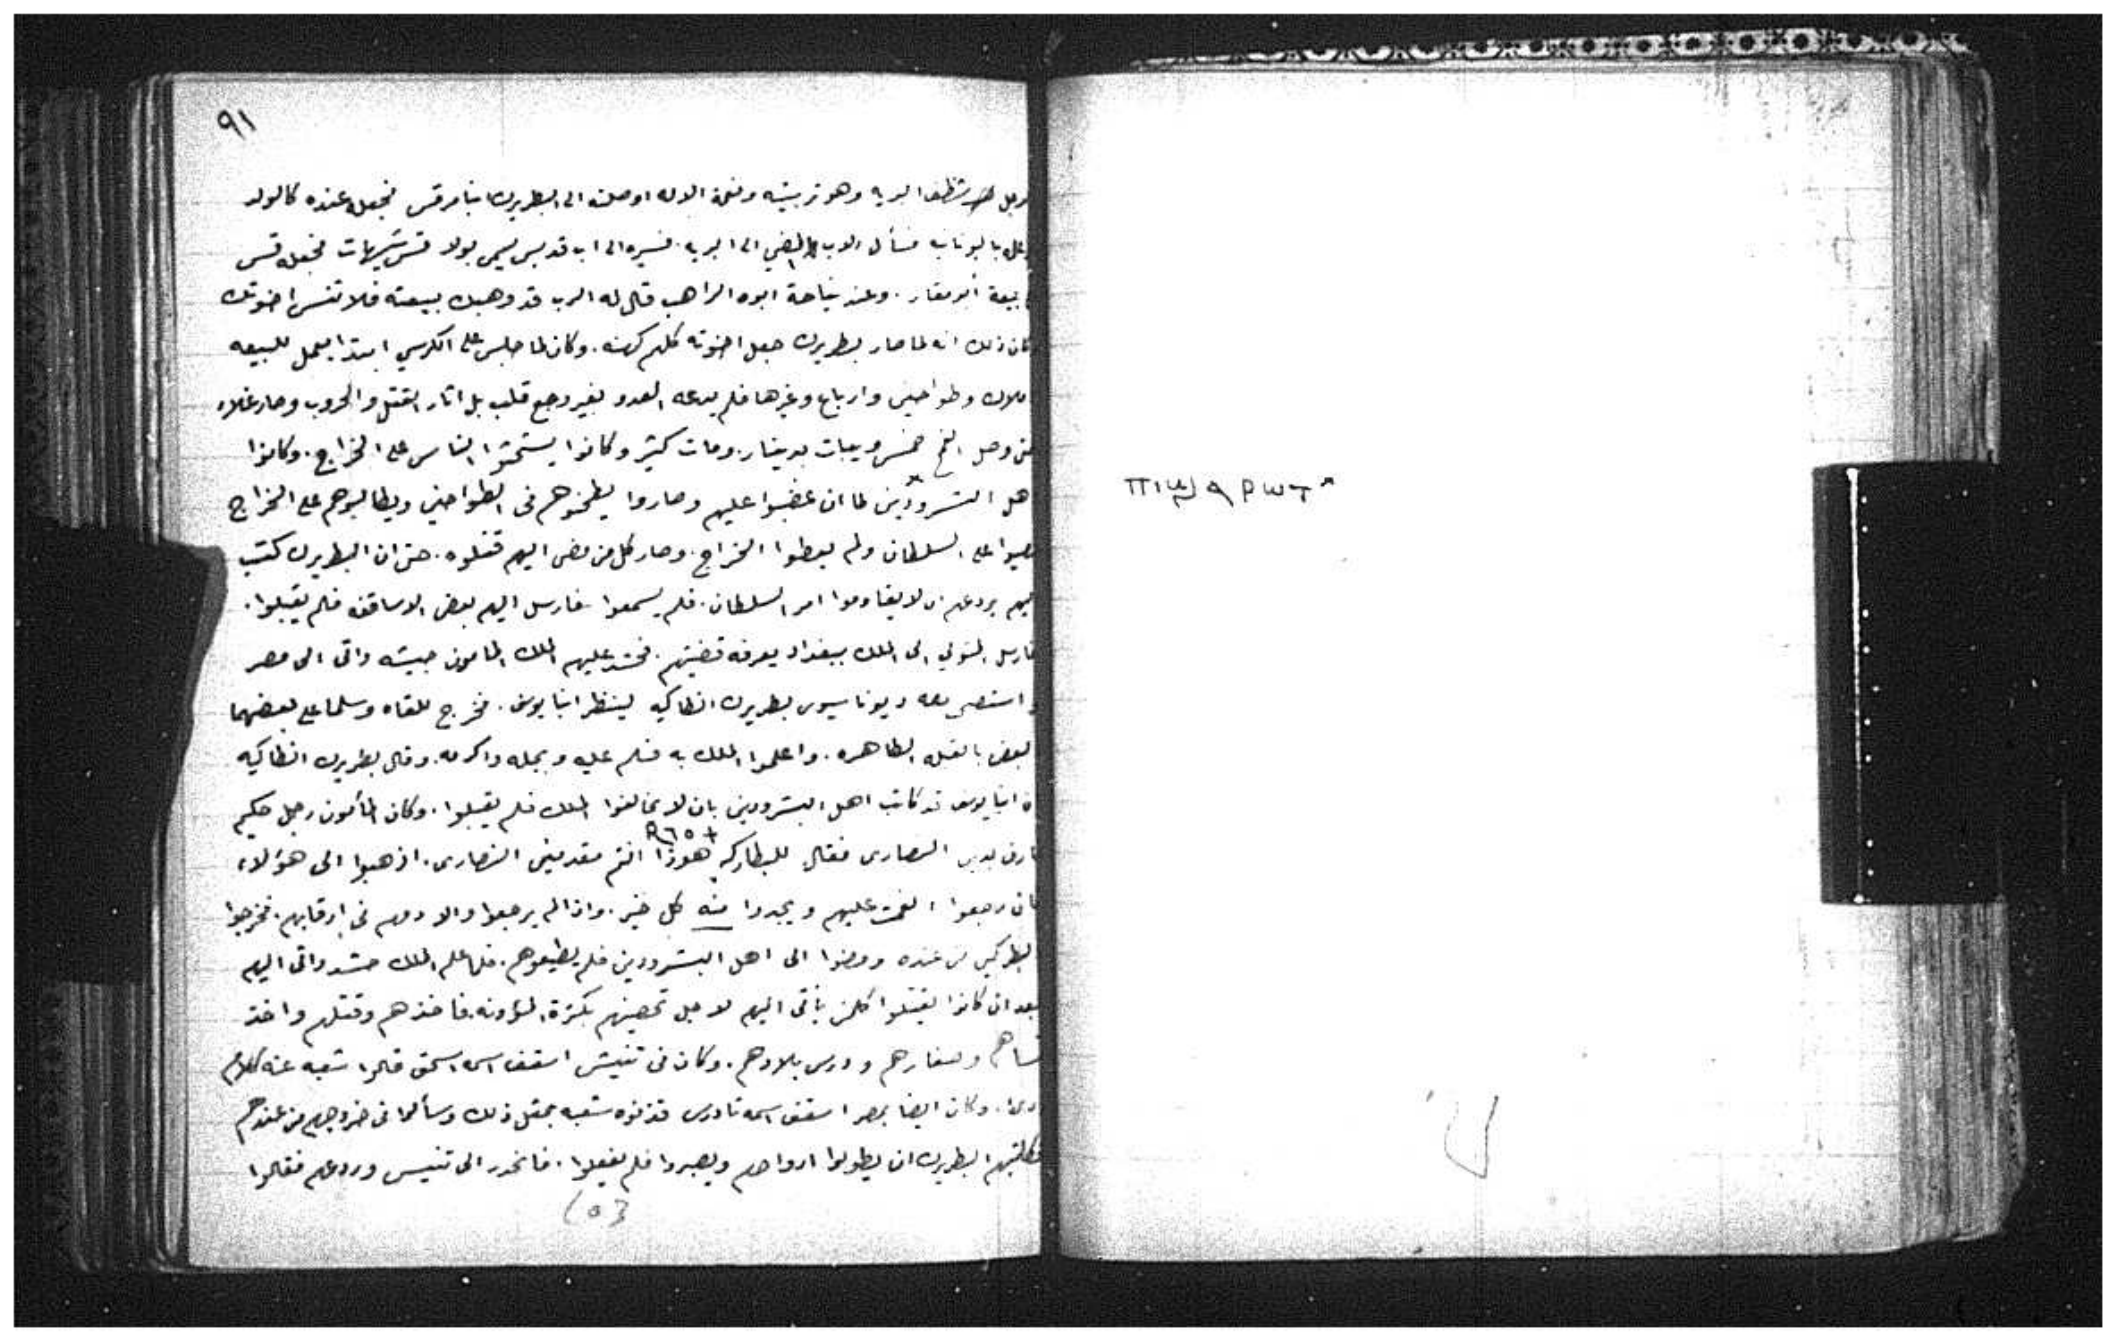 ٩١
وهو تربيته ونعمة الاله اوصلته الى البطريرك انبا مرقس فجعله عنده كالولد
فسأل الاب المضي الى البريه. فسيره الى اب قديس يسمى بولا فجعله قس
بيعة أبو مقار. وعند نياحة ابوه الراهب قال له الرب قد وهبك بيعته فلا تنس اخوتك
ذلك انه لما صار بطريرك جعل اخوته كلهم كهنه. وكان لما جلس على الكرسي ابتدا يعمل للبيعه
املاك وطواحين وارباع وغيرها فلم يدعه العدو بغير وجع قلب بل اثار القتل والحروب وصار غلاء
وصل القمح خمس ويبات بدينار. ومات كثير وكانوا يستحثوا الناس على الخراج. وكانوا
اهل البشرودين لما ان غضبوا عليهم وصاروا يطحنوهم فى الطواحين ويطالبوهم على الخراج
على السلطان ولم يعطوا الخراج. وصار كل من مضى اليهم قتلوه. حتى ان البطريرك كتب
اليهم يردعهم ان لا يقاوموا امر السلطان. فلم يسمعوا. فارسل اليهم بعض الاساقفه فلم يقبلوا.
فارسل المتولي الى الملك ببغداد يعرفه قضيتهم. فحشد عليهم الملك المامون جيشه واتى الى مصر
استصحب معه ديوناسيوس بطريرك انطاكيه لينظر انبا يوسف. فخرج للقاه وسلما على بعضهما
البعض بالقبله الطاهره. واعلموا الملك به فسلم عليه وبجله واكرمه. وقال بطريرك انطاكيه
ان انبا يوسف قد كاتب اهل البشرودين بان لا يخالفوا الملك فلم يقبلوا. وكان المأمون رجل حكيم
عارف بدين النصارى فقال للبطاركه هوذا انتم مقدمين النصارى. اذهبوا الى هؤلاء
فان رجعوا انعمت عليهم ويجدوا منه كل خير. واذا لم يرجعوا والا دمهم فى ارقابهم. فخرجوا
من عنده ومضوا الى اهل البشرودين فلم يطيعوهم. فلما علم الملك حشد واتى اليهم
بعد ان كانوا يقتلوا كلمن يأتى اليهم لاجل تحصينهم بكثرة المؤونه. فاخذهم وقتلهم واخذ
نساهم وصغارهم ودرس بلادهم. وكان فى تنيس اسقف اسمه اسحق قالوا شعبه عنه كلام
وكان ايضا بمصر اسقف اسمه تادرس قذفوه شعبه بمثل ذلك وسألوا فى خروجهم من عندهم
البطريرك ان يطولوا ارواحهم ويصبروا فلم يفعلوا. فانحدر الى تنيس وردعهم فقالوا